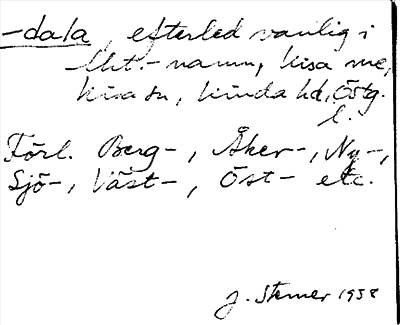 -dala, efterled vanlig i
lht.-namn, Kisa me,
Kisa sn, Kinda hd, Östg.
l.
Förl. Berg-, Åker-, Ny-,
Sjö-, Väst-, Öst- etc.
J. Sterner 1938